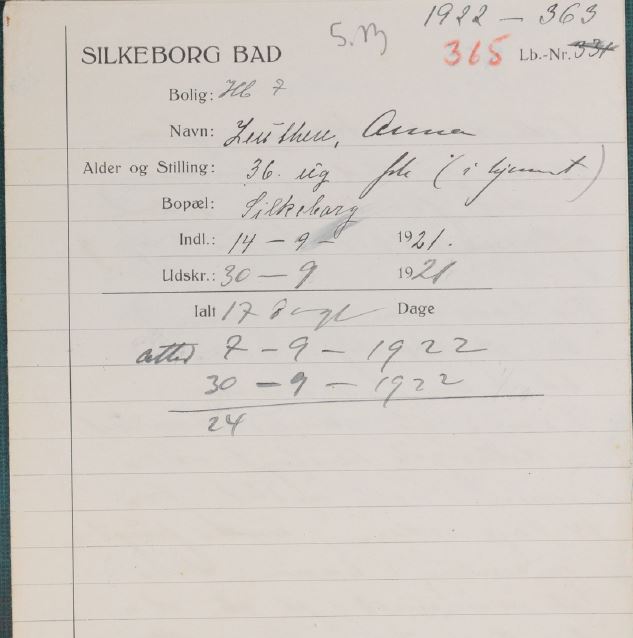 1922 - 363
S.M
SILKEBORG BAD 365 Lb.-Nr. 331
Bolig: Hb 7
Navn: Leuthen, Anna
Alder og Stilling: 36. ug frk (i hjemmet)
Bopæl: Silkeborg
Indl.: 14 - 9 - 1921.
Udskr.: 30 - 9 1921
Ialt 17 Dage
7 - 9 - 1922
30 - 9 - 1922
24